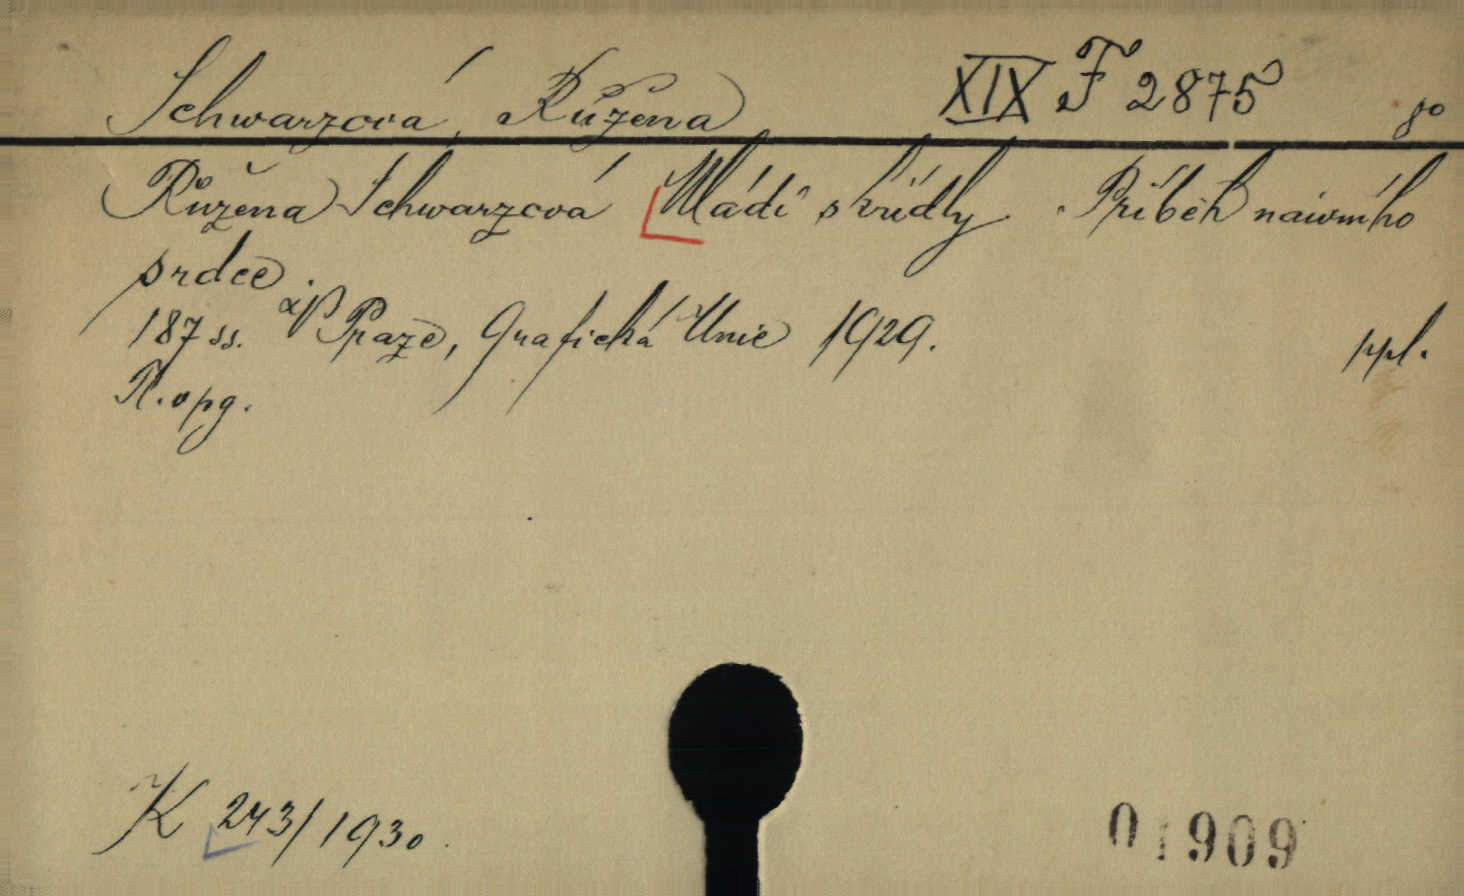 Schwarzová, Růžena XIX F 2875 8°
Růžena Schwarzová Mládí s křídly. Příběh naivního
srdce.
187 ss. V Praze, Grafická Unie 1929. ppl.
R. opg.
K 243/1930.
01909